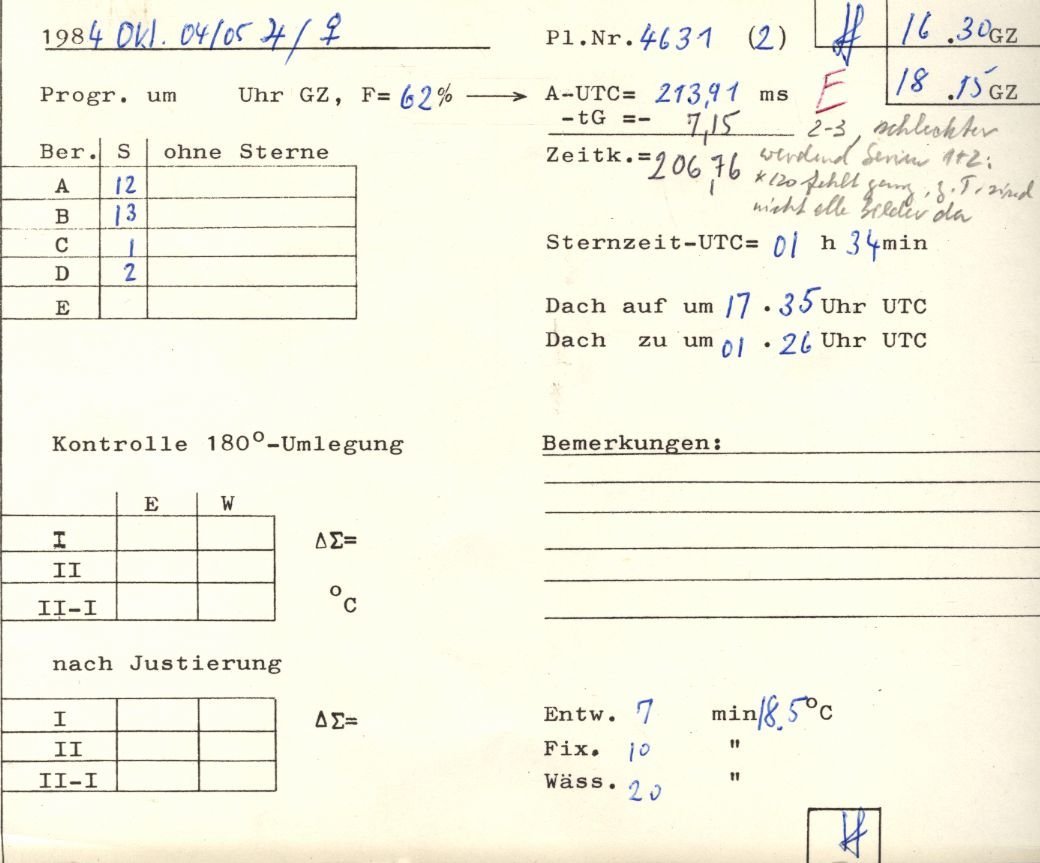 1984 Okt. 04/05 ♃/♀
Pl.Nr. 4631 (2)
16.30 GZ
18.15 GZ
Progr. um Uhr GZ, F= 62% → A-UTC= 213,91 ms
F
-tG =- 7,15
2-3, schlechter
Zeitk.= 206,76
werdend Serien 1+2:
*120 fehlt ganz, z.T. sind
nicht alle Bilder da
Ber. S ohne Sterne
A 12
B 13
C 1
D 2
E
Sternzeit-UTC= 01 h 34 min
Dach auf um 17.35 Uhr UTC
Dach zu um 01.26 Uhr UTC
Kontrolle 180°-Umlegung
E W
I ΔΣ=
II
II-I °C
Bemerkungen:
nach Justierung
I ΔΣ=
II
II-I
Entw. 7 min 18.5°C
Fix. 10 "
Wäss. 20 "